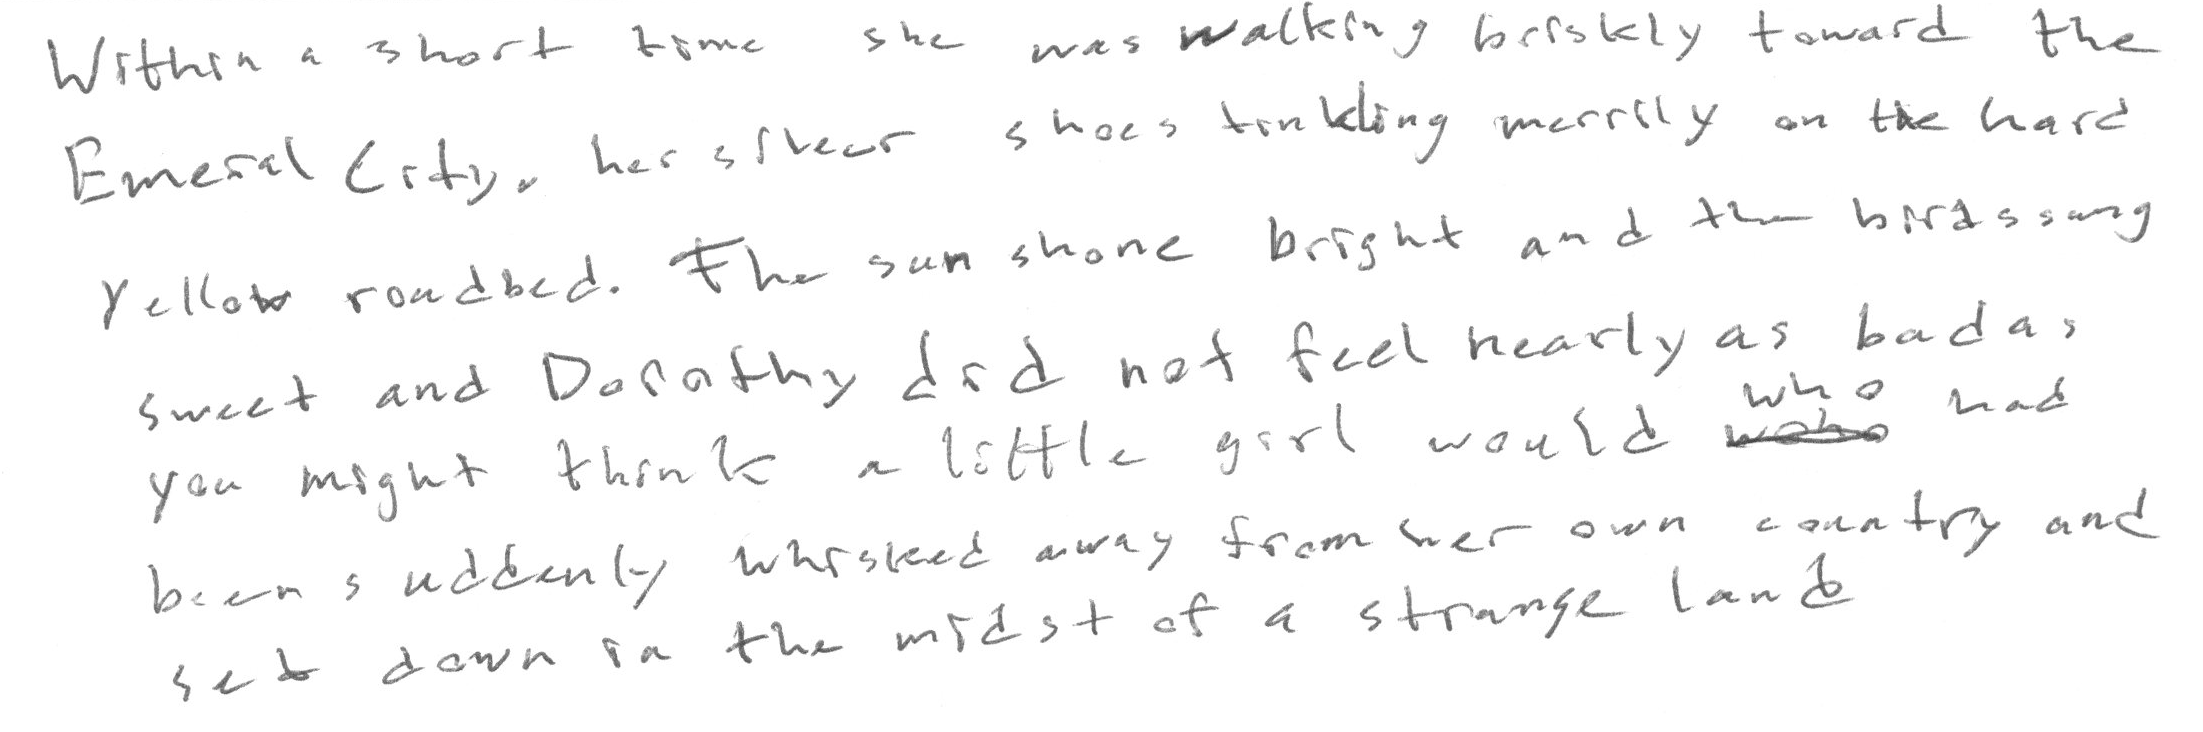 Within a short time she was walking briskly toward the
Emeral City, her silver shoes tinkling merrily on the hard
Yellow roadbed. The sun shone bright and the birds sang
sweet and Dorothy did not feel nearly as bad as
you might think a little girl would who had
been suddenly whisked away from her own country and
set down in the midst of a strange land